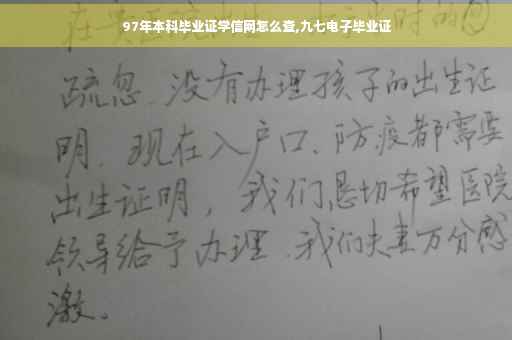 97年本科毕业证学信网怎么查,九七电子毕业证
疏忽、没有办理孩子的出生证
明、现在入户口、防疫都需要
出生证明，我们恳切希望医院
领导给予办理、我们夫妻万分感
激。